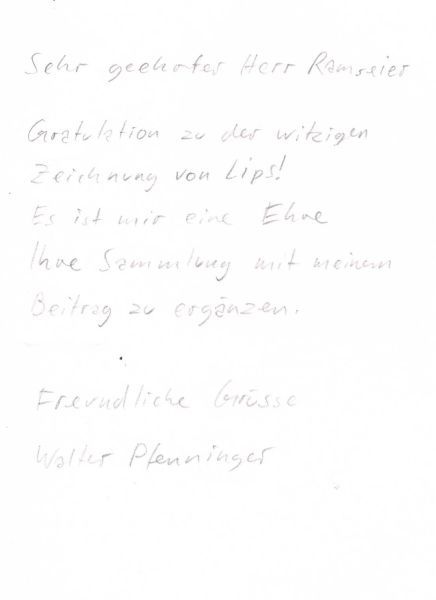 Sehr geehrter Herr Ramseier
Gratulation zu der witzigen
Zeichnung von Lips!
Es ist mir eine Ehre
Ihre Sammlung mit meinem
Beitrag zu ergänzen.
Freundliche Grüsse
Walter Pfenninger